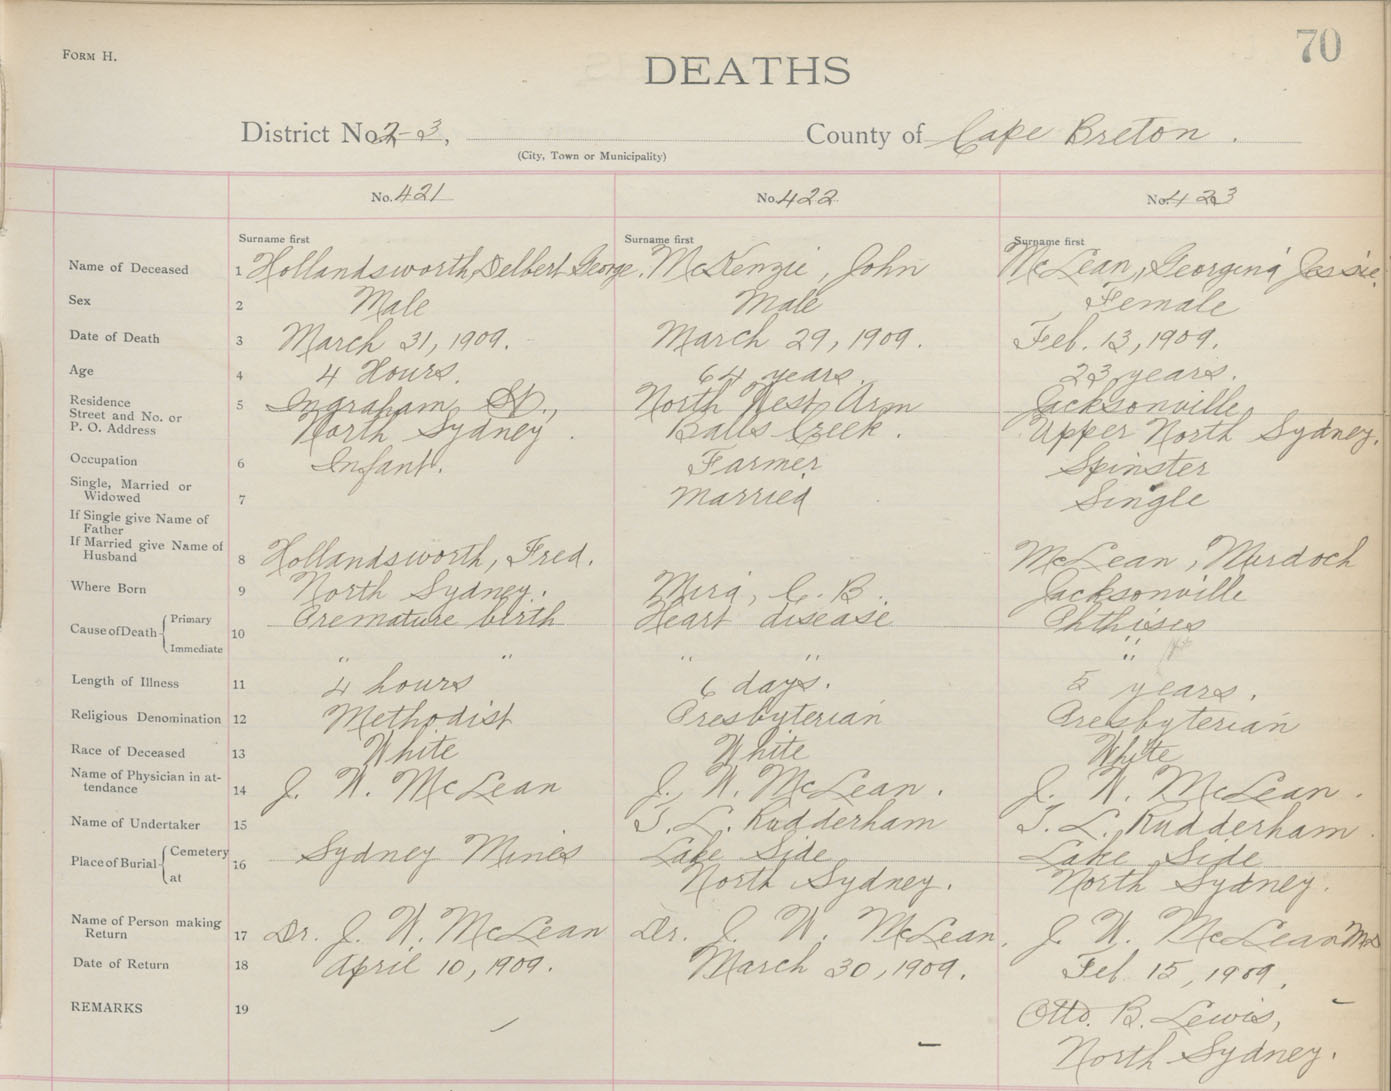 FORM H.
70
DEATHS
District No. 2-3,
County of Cape Breton.
(City, Town or Municipality)
No. 421
No. 422
No. 423
Surname first
Surname first
Surname first
Name of Deceased 1 Hollandsworth, Delbert George. McKenzie, John McLean, Georgina Jessie.
Sex 2 Male Male Female
Date of Death 3 March 31, 1909. March 29, 1909. Feb. 13, 1909.
Age 4 4 Hours. 64 years. 23 years.
Residence 5 Ingraham St., North West Arm Jacksonville
Street and No. or
P. O. Address North Sydney. Balls Creek. Upper North Sydney.
Occupation 6 Infant. Farmer Spinster
Single, Married or
Widowed 7 Married Single
If Single give Name of
Father
If Married give Name of
Husband 8 Hollandsworth, Fred. McLean, Murdoch
Where Born 9 North Sydney. Mira, C. B. Jacksonville
Cause of Death Primary 10 Premature birth Heart disease Phthisis
Immediate " " " " "
Length of Illness 11 4 hours 6 days. 5 years.
Religious Denomination 12 Methodist Presbyterian Presbyterian
Race of Deceased 13 White White White
Name of Physician in at-
tendance 14 J. W. McLean J. W. McLean. J. W. McLean.
Name of Undertaker 15 T. L. Rudderham T. L. Rudderham.
Place of Burial Cemetery 16 Sydney Mines Lake Side Lake Side
at North Sydney. North Sydney.
Name of Person making
Return 17 Dr. J. W. McLean Dr. J. W. McLean. J. W. McLean MD
Date of Return 18 April 10, 1909. March 30, 1909. Feb. 15, 1909.
REMARKS 19 Otto. B. Lewis,
North Sydney.